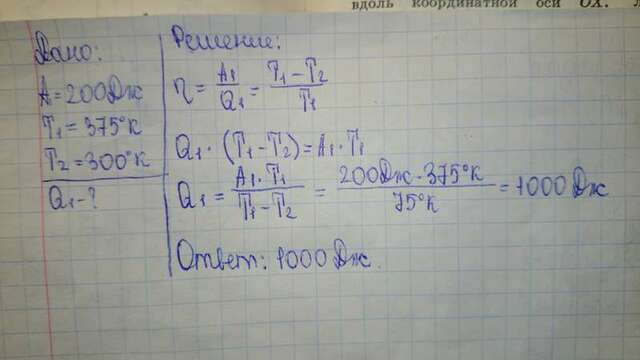 вдоль координатной оси OX.
Дано:
A=200Дж
T₁=375°К
T₂=300°К
Q₁-?
Решение:
η = A₁/Q₁ = (T₁-T₂)/T₁
Q₁·(T₁-T₂)=A₁·T₁
Q₁ = (A₁·T₁)/(T₁-T₂) = (200Дж·375°К)/(75°К) = 1000 Дж
Ответ: 1000 Дж.